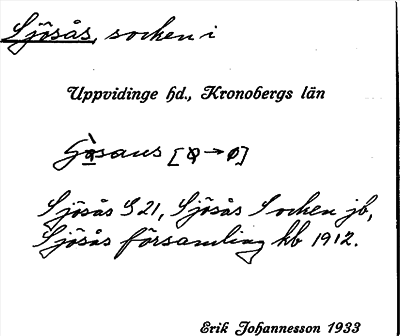 Sjösås, socken i
Uppvidinge hd., Kronobergs län
Sjösås S 21, Sjösås Socken jb,
Sjösås församling kb 1912.
Erik Johannesson 1933